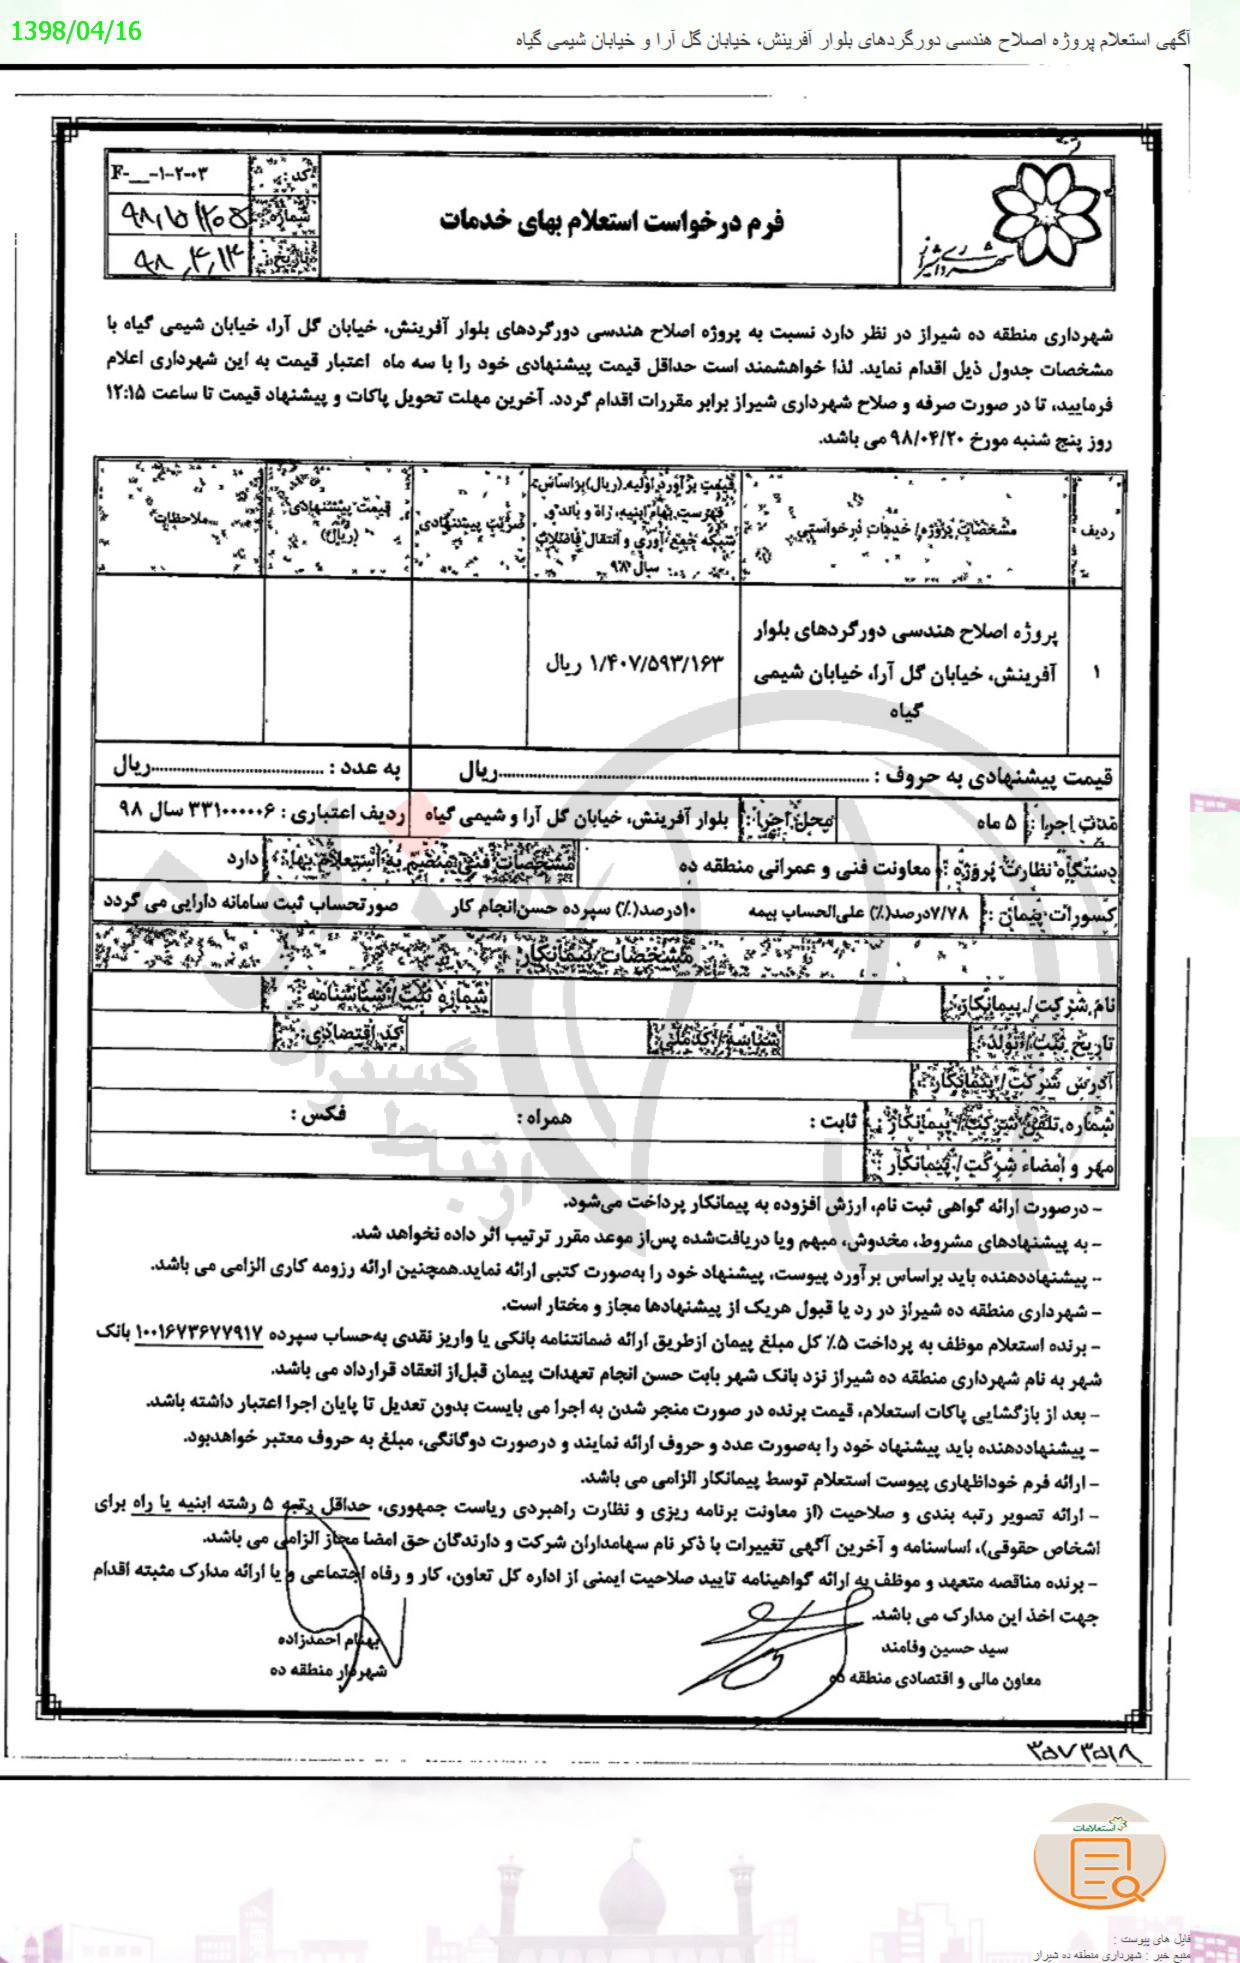 1398/04/16
آگهی استعلام پروژه اصلاح هندسی دورگردهای بلوار آفرینش، خیابان گل آرا و خیابان شیمی گیاه
شهرداری شیراز
فرم درخواست استعلام بهای خدمات
کد: F-__-۱-۲-۰۳
شماره:
تاریخ: ۹۸,۴,۱۳
شهرداری منطقه ده شیراز در نظر دارد نسبت به پروژه اصلاح هندسی دورگردهای بلوار آفرینش، خیابان گل آرا، خیابان شیمی گیاه با
مشخصات جدول ذیل اقدام نماید. لذا خواهشمند است حداقل قیمت پیشنهادی خود را با سه ماه اعتبار قیمت به این شهرداری اعلام
فرمایید، تا در صورت صرفه و صلاح شهرداری شیراز برابر مقررات اقدام گردد. آخرین مهلت تحویل پاکات و پیشنهاد قیمت تا ساعت ۱۲:۱۵
روز پنج شنبه مورخ ۹۸/۰۴/۲۰ می باشد.
ردیف
مشخصات پروژه/ خدمات درخواستی
قیمت برآورد اولیه (ریال) براساس
فهرست بهای ابنیه، راه و باند و
شبکه جمع آوری و انتقال فاضلاب
سال ۹۸
ضریب پیشنهادی
قیمت پیشنهادی
(ریال)
ملاحظات
۱
پروژه اصلاح هندسی دورگردهای بلوار
آفرینش، خیابان گل آرا، خیابان شیمی
گیاه
۱/۴۰۷/۵۹۳/۱۶۳ ریال
قیمت پیشنهادی به حروف : ..........ریال به عدد : ..........ریال
مدت اجرا : ۵ ماه محل اجرا : بلوار آفرینش، خیابان گل آرا و شیمی گیاه ردیف اعتباری : ۳۳۱۰۰۰۰۰۶ سال ۹۸
دستگاه نظارت پروژه : معاونت فنی و عمرانی منطقه ده مشخصات فنی منضم به استعلام بهاء : دارد
کسورات پیمان : ۷/۷۸درصد(٪) علی‌الحساب بیمه ۱۰درصد(٪) سپرده حسن‌انجام کار صورتحساب ثبت سامانه دارایی می گردد
مشخصات پیمانکار
نام شرکت/ پیمانکار: شماره ثبت/شناسنامه :
تاریخ ثبت/تولد: شناسه/کدملی: کد اقتصادی:
آدرس شرکت/پیمانکار :
شماره تلفن شرکت/پیمانکار : ثابت : همراه : فکس :
مهر و امضاء شرکت/پیمانکار :
- درصورت ارائه گواهی ثبت نام، ارزش افزوده به پیمانکار پرداخت می‌شود.
- به پیشنهادهای مشروط، مخدوش، مبهم ویا دریافت‌شده پس‌از موعد مقرر ترتیب اثر داده نخواهد شد.
- پیشنهاددهنده باید براساس برآورد پیوست، پیشنهاد خود را به‌صورت کتبی ارائه نماید.همچنین ارائه رزومه کاری الزامی می باشد.
- شهرداری منطقه ده شیراز در رد یا قبول هریک از پیشنهادها مجاز و مختار است.
- برنده استعلام موظف به پرداخت ۵٪ کل مبلغ پیمان ازطریق ارائه ضمانتنامه بانکی یا واریز نقدی به‌حساب سپرده ۱۰۰۱۶۷۳۶۷۷۹۱۷ بانک
شهر به نام شهرداری منطقه ده شیراز نزد بانک شهر بابت حسن انجام تعهدات پیمان قبل‌از انعقاد قرارداد می باشد.
- بعد از بازگشایی پاکات استعلام، قیمت برنده در صورت منجر شدن به اجرا می بایست بدون تعدیل تا پایان اجرا اعتبار داشته باشد.
- پیشنهاددهنده باید پیشنهاد خود را به‌صورت عدد و حروف ارائه نمایند و درصورت دوگانگی، مبلغ به حروف معتبر خواهدبود.
- ارائه فرم خوداظهاری پیوست استعلام توسط پیمانکار الزامی می باشد.
- ارائه تصویر رتبه بندی و صلاحیت (از معاونت برنامه ریزی و نظارت راهبردی ریاست جمهوری، حداقل رتبه ۵ رشته ابنیه یا راه برای
اشخاص حقوقی)، اساسنامه و آخرین آگهی تغییرات با ذکر نام سهامداران شرکت و دارندگان حق امضا مجاز الزامی می باشد.
- برنده مناقصه متعهد و موظف به ارائه گواهینامه تایید صلاحیت ایمنی از اداره کل تعاون، کار و رفاه اجتماعی و یا ارائه مدارک مثبته اقدام
جهت اخذ این مدارک می باشد.
سید حسین وفامند
معاون مالی و اقتصادی منطقه ده
بهنام احمدزاده
شهردار منطقه ده
۳۵۷۳۵۱۸
استعلامات
فایل های پیوست :
منبع خبر : شهرداری منطقه ده شیراز